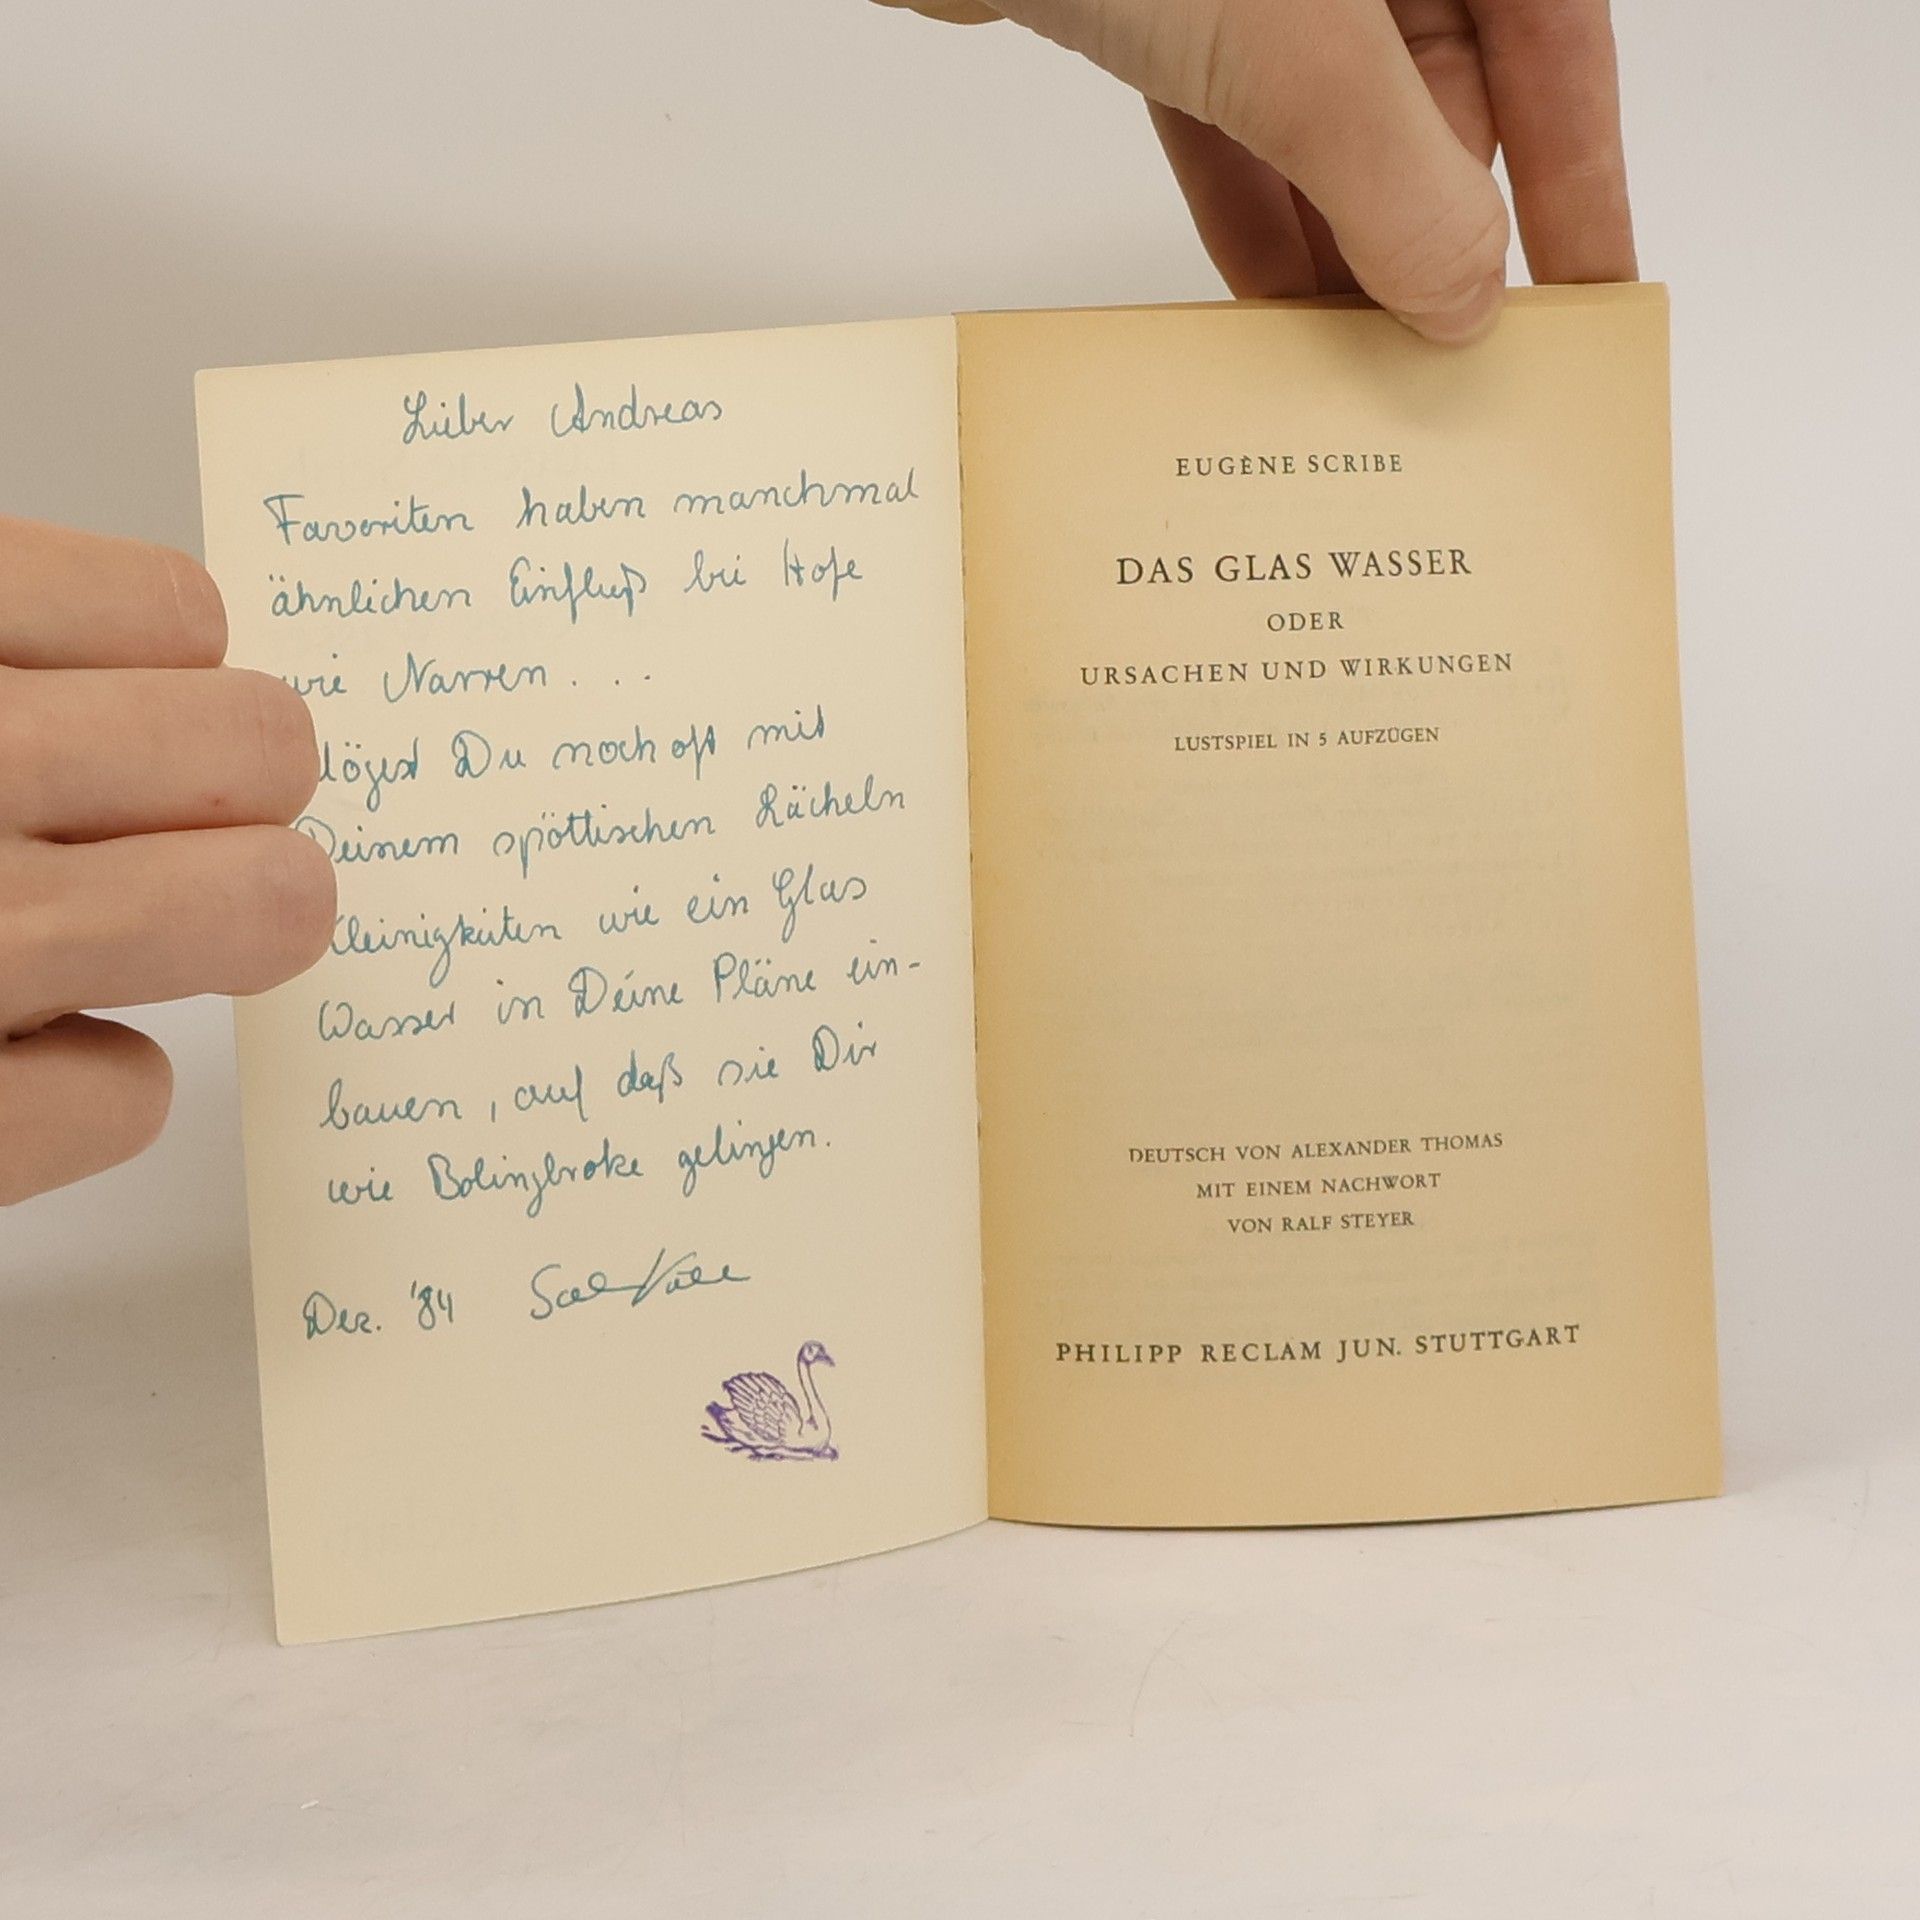 Lieber Andreas
Favoriten haben manchmal
ähnlichen Einfluß bei Hofe
wie Narren . . .
Mögest Du noch oft mit
Deinem spöttischen Lächeln
Kleinigkeiten wie ein Glas
Wasser in Deine Pläne ein-
bauen, auf daß sie Dir
wie Bolingbroke gelingen.
Dez. '84
EUGÈNE SCRIBE
DAS GLAS WASSER
ODER
URSACHEN UND WIRKUNGEN
LUSTSPIEL IN 5 AUFZÜGEN
DEUTSCH VON ALEXANDER THOMAS
MIT EINEM NACHWORT
VON RALF STEYER
PHILIPP RECLAM JUN. STUTTGART